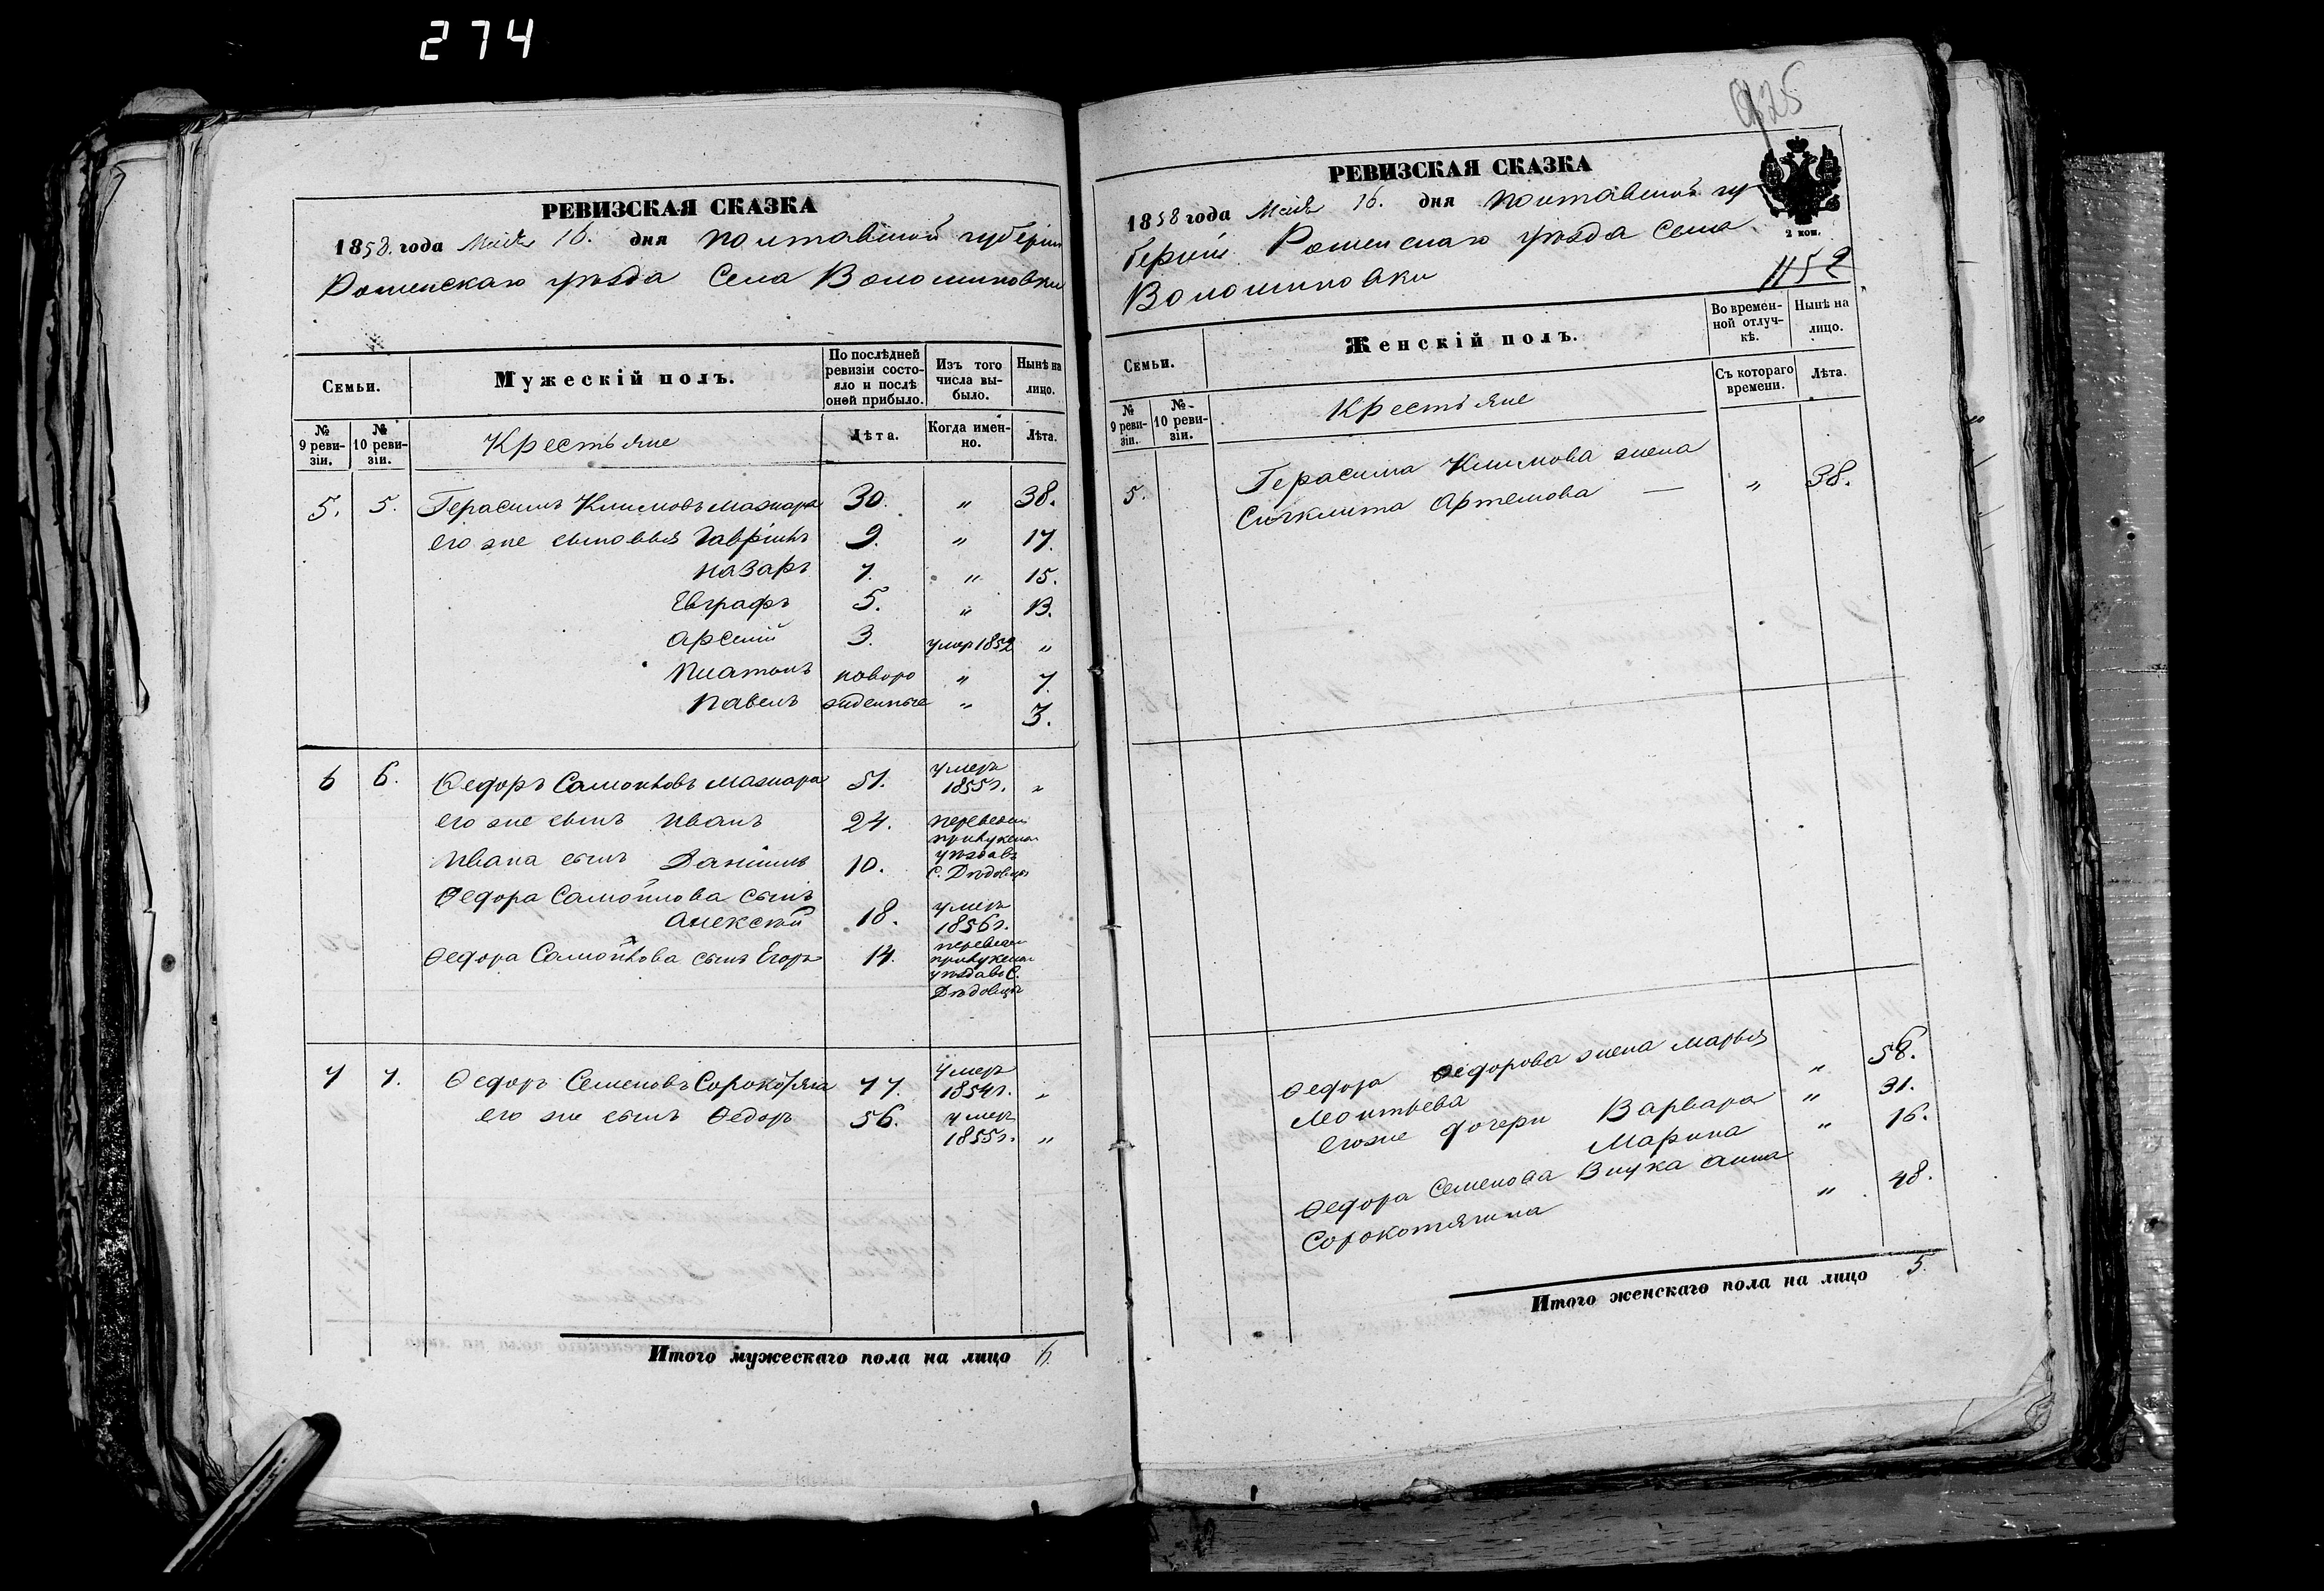 274
РЕВИЗСКАЯ СКАЗКА
1858. года Маія 16. дня Полтавской губерніи
Роменскаго уѣзда Села Волошиновки
Семьи.
Мужескій полъ.
По послѣдней ревизіи состояло и послѣ оной прибыло.
Изъ того числа выбыло.
Нынѣ на лицо.
№ 9 ревизіи.
№ 10 ревизіи.
Крестьяне
Лѣта.
Когда именно.
Лѣта.
5. 5. Герасимъ Климовъ Мажара 30. " 38.
его же сыновья Гавріилъ 9. " 17.
Назаръ 7. " 15.
Евграфъ 5. " 13.
Арсеній 3. умер 1852 "
Платонъ новоро " 7.
Павелъ жденные " 3.
6 6. Ѳедоръ Самойловъ Мажара 51. умеръ 1855г. "
его же сынъ Иванъ 24. переведен
прилукскаго
Ивана сынъ Даніилъ 10. уѣзда въ
с. Дѣдовцы
Ѳедора Самойлова сынъ
Алексѣй 18. умеръ 1856г.
Ѳедора Самойлова сынъ Егоръ 14. переведен
прилукскаго
уѣзда въ С.
Дѣдовцы
7 7. Ѳедоръ Семеновъ Сорокотяга 77. умеръ 1854г. "
его же сынъ Ѳедоръ 56. умеръ 1855г. "
Итого мужескаго пола на лицо 6.
925
РЕВИЗСКАЯ СКАЗКА
2 коп.
1858 года Маія 16. дня Полтавской гу
берніи Роменскаго уѣзда Села
Волошиновки
1152
Семьи.
Женскій полъ.
Во временной отлучкѣ.
Нынѣ на лицо.
№ 9 ревизіи.
№ 10 ревизіи.
Крестьяне
Съ котораго времени.
Лѣта.
5. Герасима Климова жена
Сигклита Артемова — " 38.
Ѳедора Ѳедорова жена Марья
Леонтьева " 58.
его же дочери Варвара " 31.
Марина " 16.
Ѳедора Семенова Внука Анна
Сорокотягина " 48.
Итого женскаго пола на лицо 5.